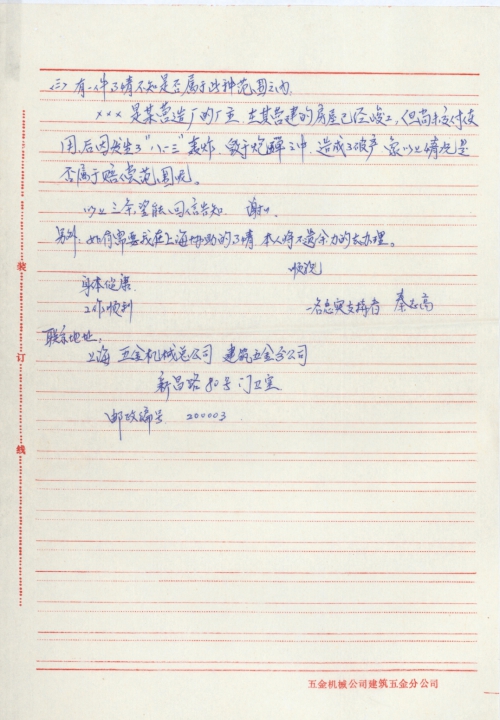 (三) 有一件事情不知是否属于此种范围之内.
××× 是某营造厂的厂主, 在其营建的房屋已经竣工, 但尚未交付使
用, 后因发生了"八一三"轰炸, 毁于炮弹之中, 造成了破产 象以上情况是
否属于赔偿范围呢。
以上三条望能回信告知. 谢谢.
另外: 如有需要我在上海协助的事情 本人将不遗余力的去办理。
顺祝
身体健康
工作顺利
一名忠实支持者 秦志高
联系地址:
上海 五金机械总公司 建筑五金分公司
新昌路80号 门卫室
邮政编号 200003
装
订
线
五金机械公司建筑五金分公司